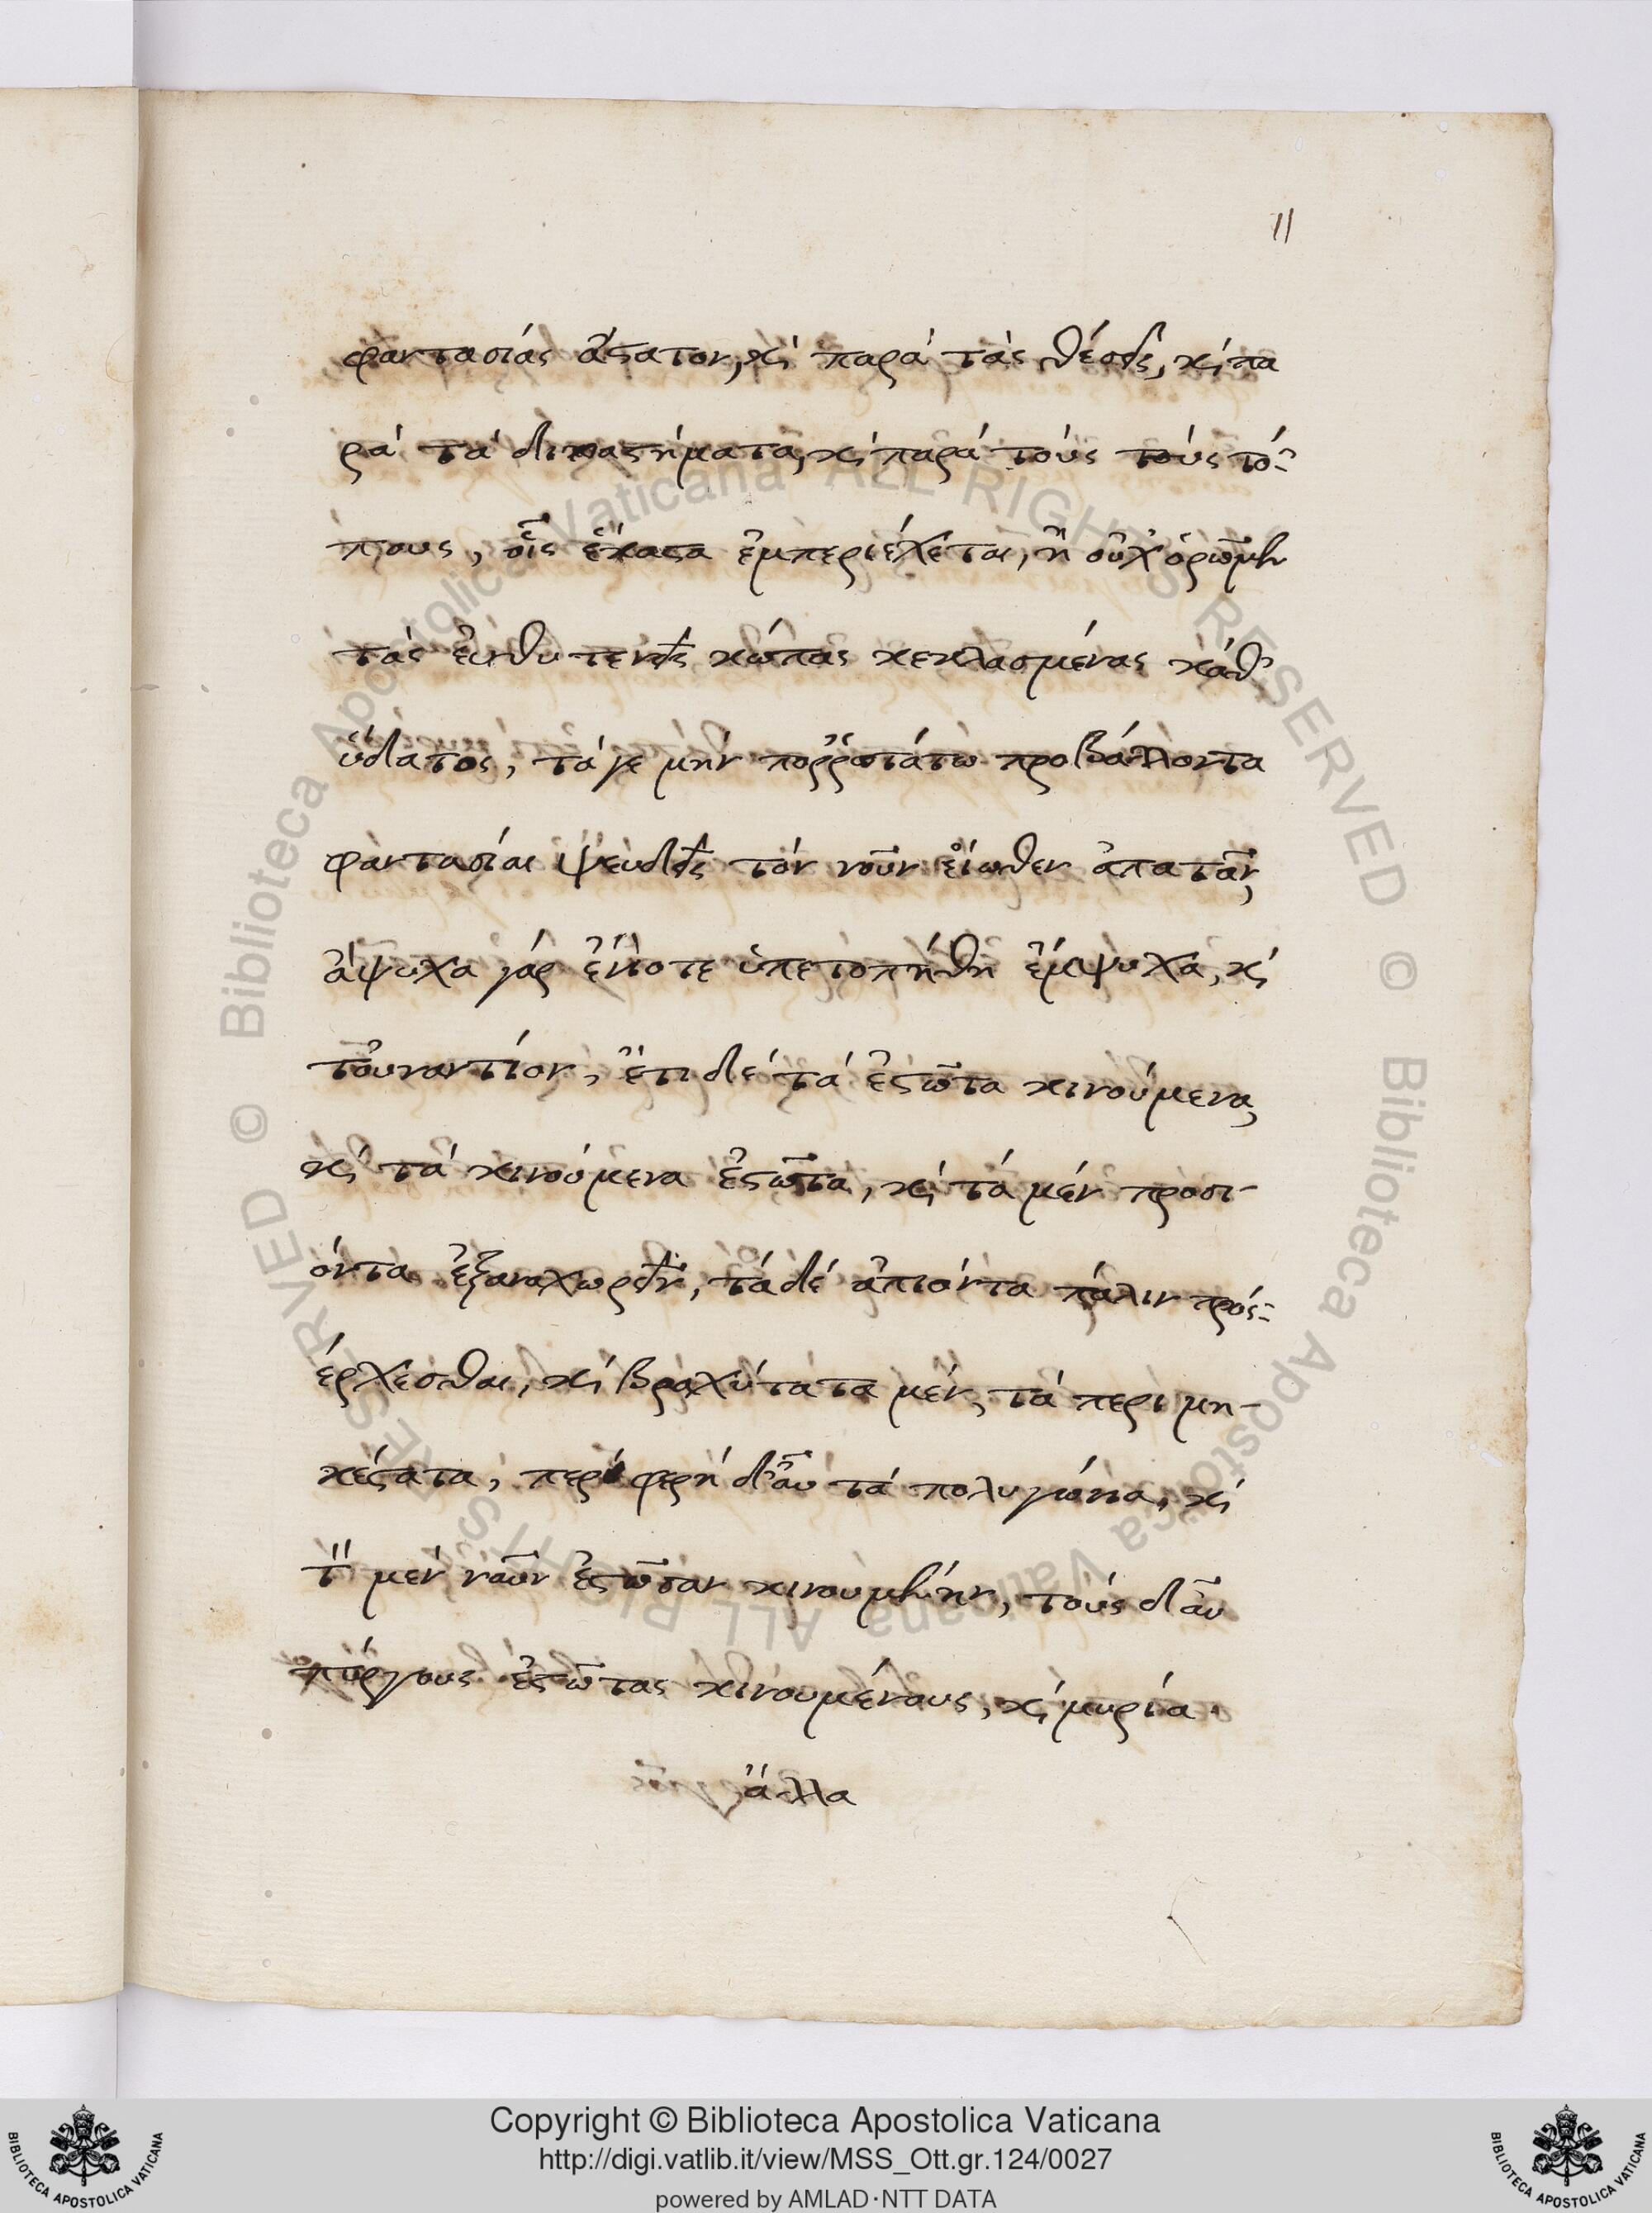 11
φαντασίας ἄστατον, καὶ παρὰ τὰς θέσεις, καὶ πα
ρὰ τὰ διαστήματα, καὶ παρὰ τοὺς τοὺς τό-
πους, οἷς ἕκαστα ἐμπεριέχεται, ἢ οὐχ ὁρῶμεν
τὰς εὐθυτενεῖς κώπας κεκλασμένας καθ'
ὕδατος, τά γε μὴν πορρωτάτω προβάλλοντα
φαντασίαι ψευδεῖς τὸν νοῦν εἴωθεν ἀπατᾶν,
ἄψυχα γάρ ἐνίοτε ὑπετοπήθη ἔμψυχα, καὶ
τοὐναντίον, ἔτι δέ τὰ ἑστῶτα κινούμενα,
καὶ τὰ κινούμενα ἑστῶτα, καὶ τὰ μέν προσι-
όντα ἐξαναχωρεῖν, τὰ δέ ἀπιόντα πάλιν πρός-
έρχεσθαι, καὶ βραχύτατα μέν, τὰ περιμη-
κέστατα, περιφερῆ δ' αὖ τὰ πολυγώνια, καὶ
τὴν μέν ναῦν ἑστῶσαν κινουμένην, τοὺς δ' αὖ
πύργους ἑστῶτας κινουμένους, καὶ μυρία
ἄλλα
Biblioteca Apostolica Vaticana ALL RIGHTS RESERVED © Biblioteca Apostolica Vaticana ALL RIGHTS RESERVED ©
Copyright © Biblioteca Apostolica Vaticana
http://digi.vatlib.it/view/MSS_Ott.gr.124/0027
powered by AMLAD·NTT DATA
BIBLIOTECA APOSTOLICA VATICANA
BIBLIOTECA APOSTOLICA VATICANA